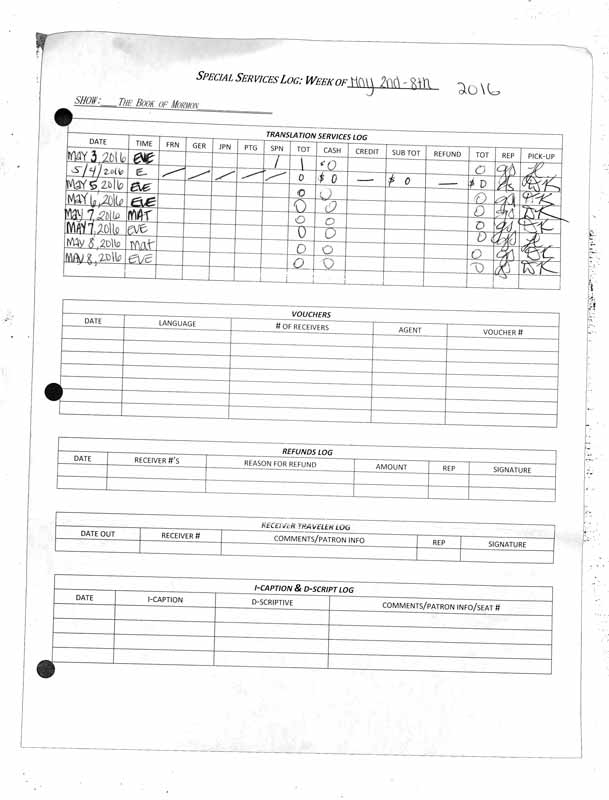 SPECIAL SERVICES LOG: WEEK OF May 2nd-8th 2016
SHOW: THE BOOK OF MORMON
TRANSLATION SERVICES LOG
DATE TIME FRN GER JPN PTG SPN TOT CASH CREDIT SUB TOT REFUND TOT REP PICK-UP
MAY 3, 2016 EVE / 1 0 0 gs
5/4/2016 E / / / / / 0 $ 0 — $ 0 — $ 0 gs DK
MAY 5, 2016 EVE 0 0 0 gs DK
MAY 6, 2016 EVE 0 0 0 gs DK
MAY 7, 2016 MAT 0 0 0 gs DK
MAY 7, 2016 EVE 0 0 0 gs
MAY 8, 2016 Mat 0 0 0 gs DK
MAY 8, 2016 EVE 0 0 0 gs DK
VOUCHERS
DATE LANGUAGE # OF RECEIVERS AGENT VOUCHER #
REFUNDS LOG
DATE RECEIVER #'S REASON FOR REFUND AMOUNT REP SIGNATURE
RECEIVER TRAVELER LOG
DATE OUT RECEIVER # COMMENTS/PATRON INFO REP SIGNATURE
I-CAPTION & D-SCRIPT LOG
DATE I-CAPTION D-SCRIPTIVE COMMENTS/PATRON INFO/SEAT #